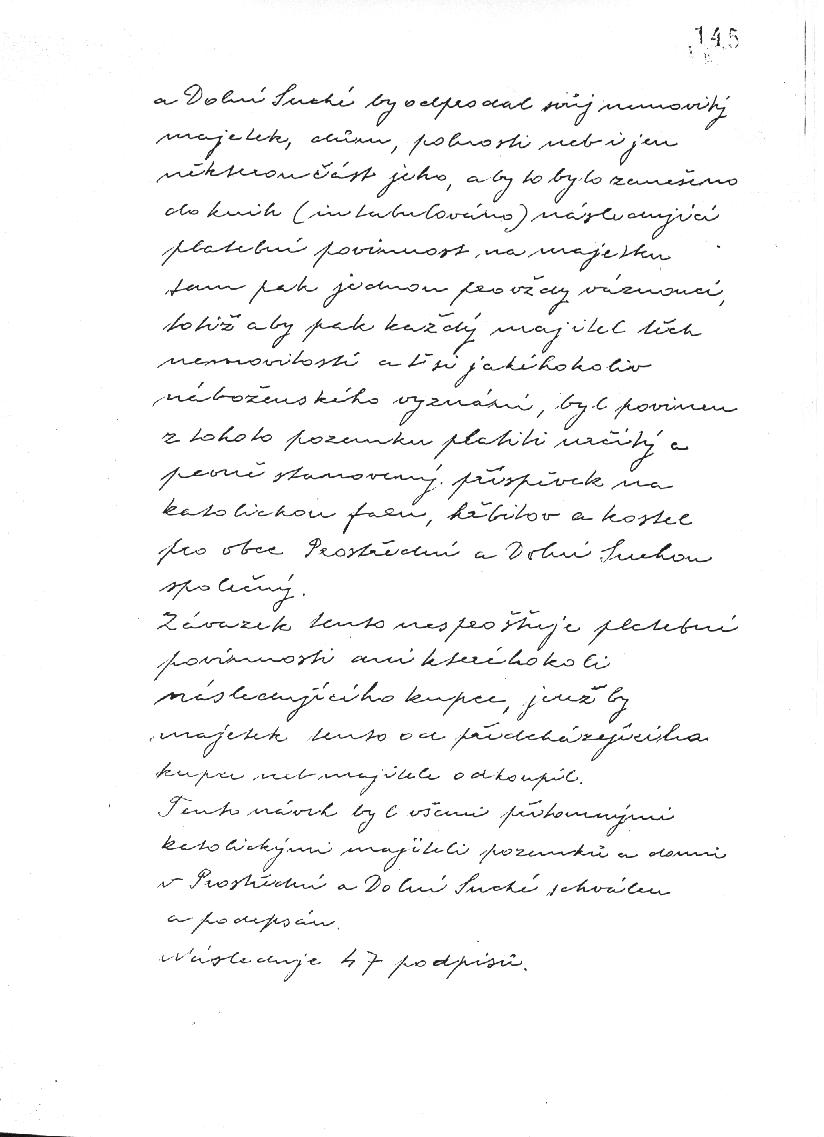 145
a Dolní Suché by odprodal svůj nemovitý
majetek, dům, polnosti neb i jen
některou část jeho, aby to bylo zanešeno
do knih (intabulováno) následující
platební povinnost, na majetku
tam pak jednou pro vždy váznoucí,
totiž aby pak každý majitel těch
nemovitostí ať si jakéhokoliv
náboženského vyznání, byl povinen
z tohoto pozemku platiti určitý a
pevně stanovený příspěvek na
katolickou faru, hřbitov a kostel
pro obce Prostřední a Dolní Suchou
společný.
Závazek tento nesprošťuje platební
povinnosti ani kteréhokoli
následujícího kupce, jenž by
majetek tento od předcházejícího
kupce neb majitele odkoupil.
Tento návrh byl všemi přítomnými
katolickými majiteli pozemků a domů
v Prostřední a Dolní Suché schválen
a podepsán.
Následuje 47 podpisů.